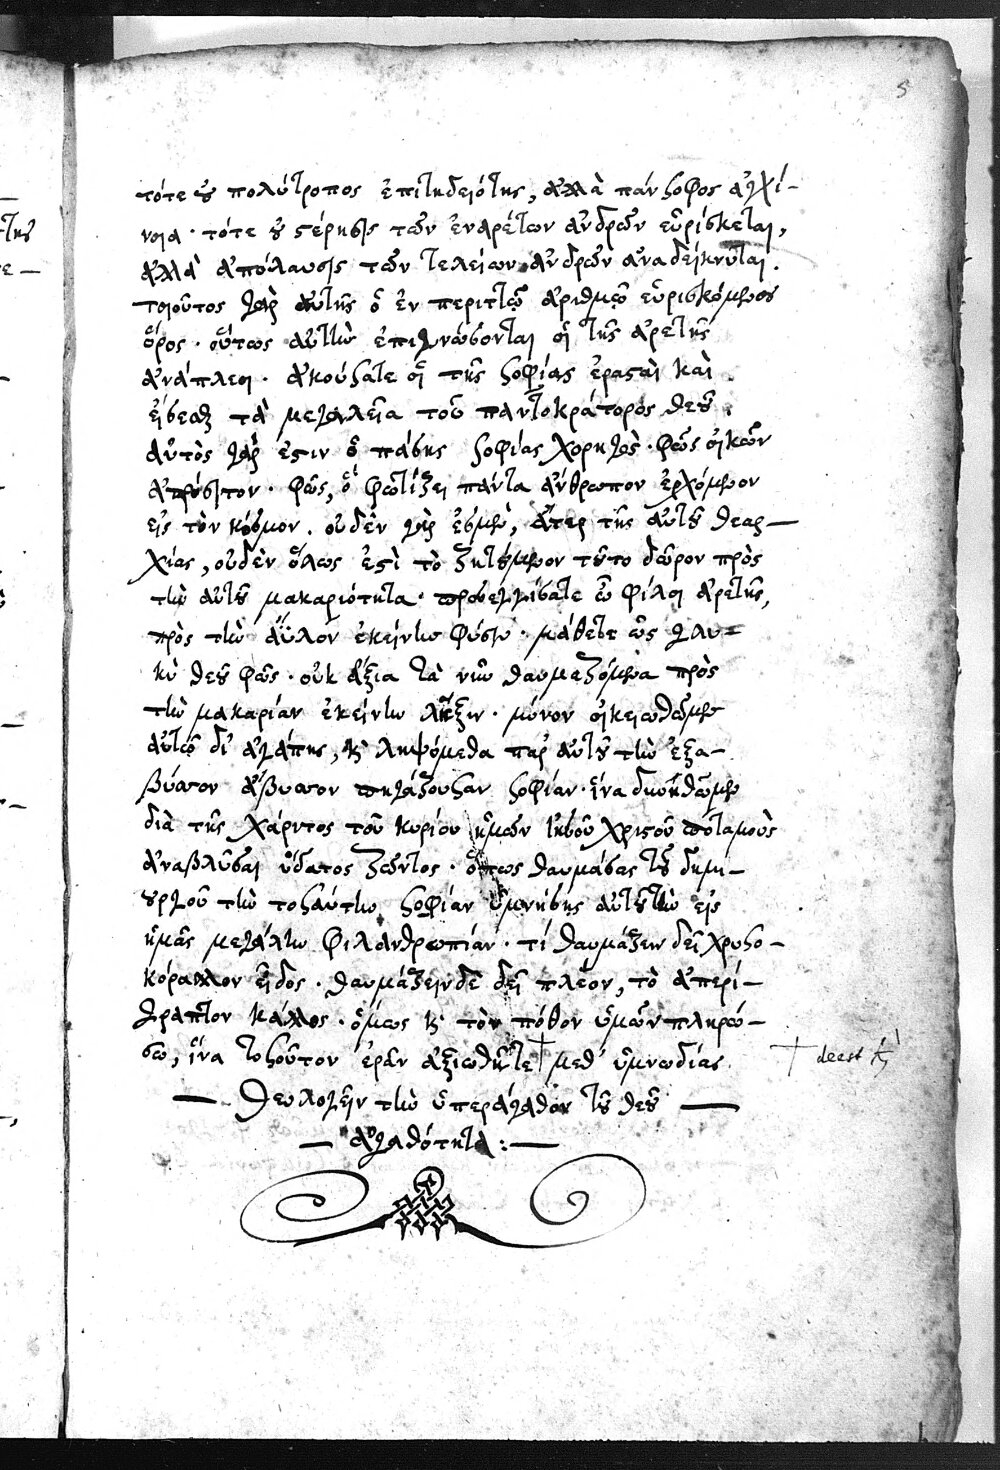 5
τότε οὐ πολύτροπος ἐπιτηδειότης, ἀλλὰ πάνσοφος ἀγχί-
νοια· τότε οὐ στέρησις τῶν ἐναρέτων ἀνδρῶν εὑρίσκεται,
ἀλλὰ ἀπόλαυσις τῶν τελείων ἀνδρῶν ἀναδείκνυται.
τοιοῦτος γὰρ αὐτῆς ὁ ἐν περιττῷ ἀριθμῷ εὑρισκόμενος
ὅρος· οὕτως αὐτὴν ἐπιγνώσονται οἱ τῆς ἀρετῆς
ἀνάπλεοι· ἀκούσατε οἱ τῆς σοφίας ἐρασταὶ καὶ
τὰ μεγαλεῖα τοῦ παντοκράτορος θεοῦ.
αὐτὸς γὰρ ἐστιν ὁ πάσης σοφίας χορηγὸς· φῶς οἰκῶν
ἀπρόσιτον· φῶς, ὃ φωτίζει πάντα ἄνθρωπον ἐρχόμενον
εἰς τὸν κόσμον. οὐδὲν γὰρ ἐσμὲν, ἄτερ τῆς αὐτοῦ θεαρ-
χίας, οὐδὲν ὅλως ἐστὶ τὸ ζητούμενον τοῦτο δῶρον πρὸς
τὴν αὐτοῦ μακαριότητα· προσεγγίσατε ὦ φίλοι ἀρετῆς,
πρὸς τὴν ἄϋλον ἐκείνην φύσιν· μάθετε ὡς γλυ-
κὺ θεοῦ φῶς· οὐκ ἄξια τὰ νῦν θαυμαζόμενα πρὸς
τὴν μακαρίαν ἐκείνην λῆξιν· μόνον οἰκειωθῶμεν
αὐτῷ δι' ἀγάπης, καὶ ληψόμεθα παρ' αὐτοῦ τὴν ἐξ ἀ-
βύσσου ἄβυσσον πηγάζουσαν σοφίαν· ἵνα δυνηθῶμεν
διὰ τῆς χάριτος τοῦ κυρίου ἡμῶν ἰησοῦ χριστοῦ ποταμοὺς
ἀναβλῦσαι ὕδατος ζῶντος· ὅπως θαυμάσας τοῦ δημι-
ουργοῦ τὴν τοσαύτην σοφίαν ὑμνήσῃς αὐτοῦ τὴν εἰς
ἡμᾶς μεγάλην φιλανθρωπίαν· τί θαυμάζειν δεῖ χρυσο-
κόραλλον εἶδος· θαυμάζειν δὲ δεῖ πλέον, τὸ ἀπερί-
γραπτον κάλλος· ὅμως καὶ τὸν πόθον ὑμῶν πληρώ-
σω, ἵνα τοσοῦτον ἐρᾶν ἀξιωθῆτε † μεθ' ὑμνωδίας † deest καὶ
θεολογεῖν τὴν ὑπεράγαθον τοῦ θεοῦ
ἀγαθότητα: